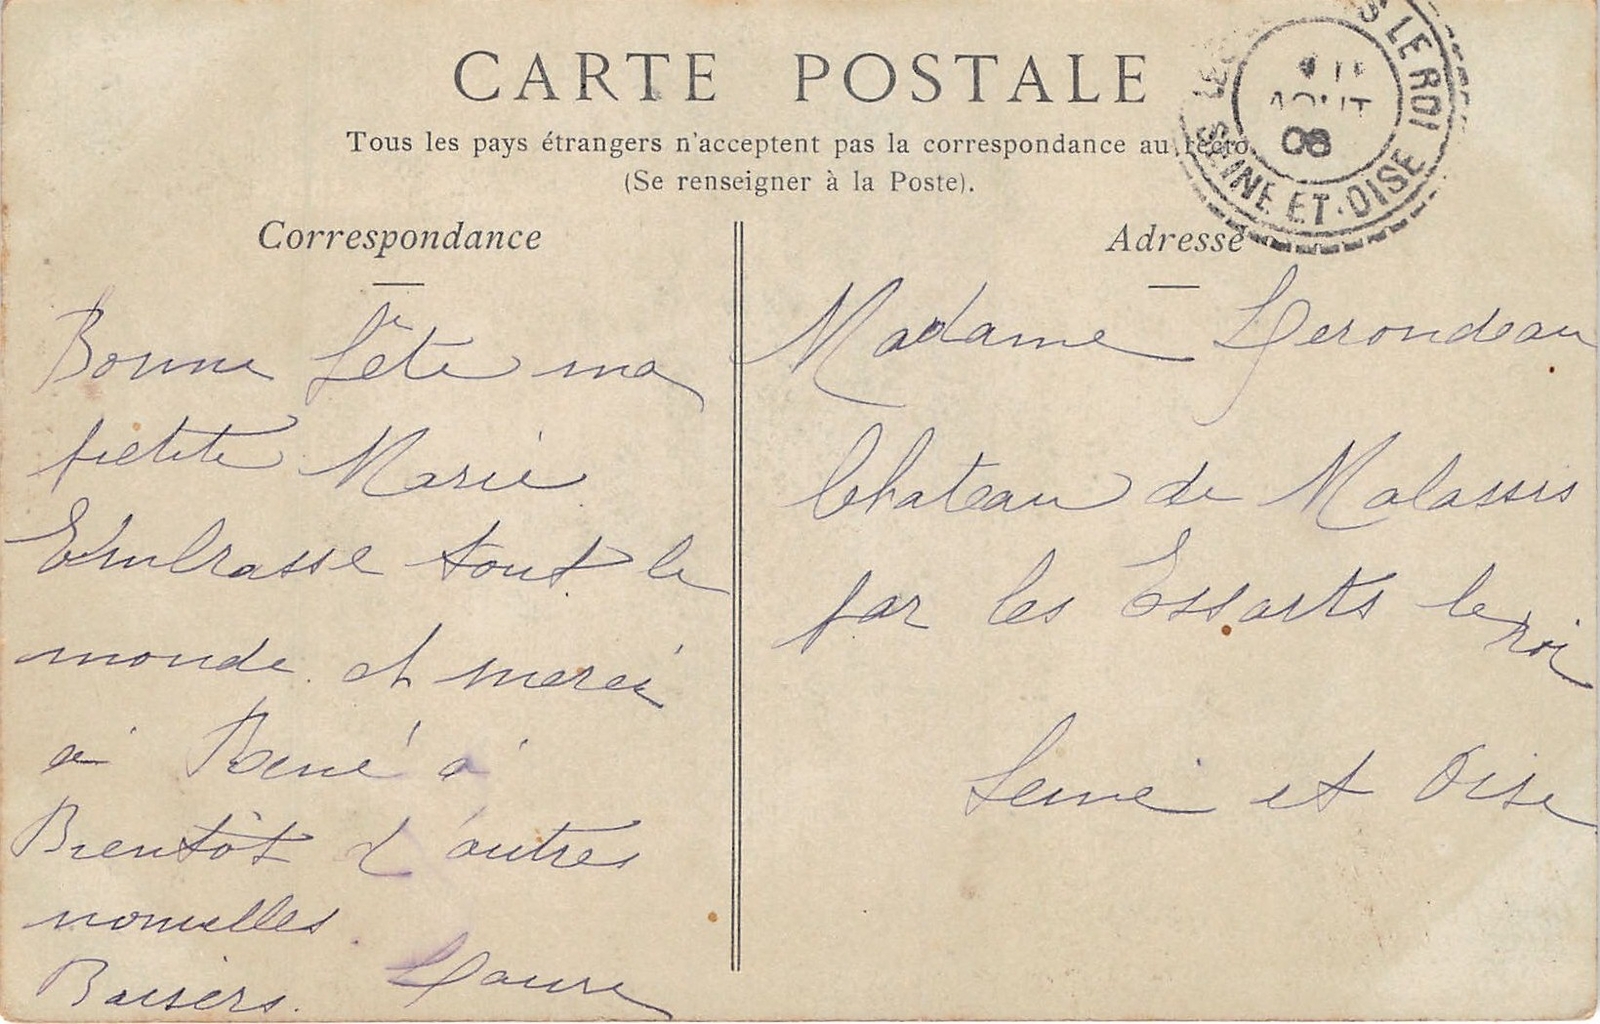 CARTE POSTALE
Tous les pays étrangers n'acceptent pas la correspondance au recto
(Se renseigner à la Poste).
LES S LE ROI
AOUT
08
SEINE ET-OISE
Correspondance
Bonne fête ma
petite Marie
Embrasse tout le
monde et merci
à René à
Bientôt d'autres
nouvelles.
Baisers. Laure
Adresse
Madame Lerondeau
Chateau de Malassis
par les Essarts le
roi
Seine et Oise